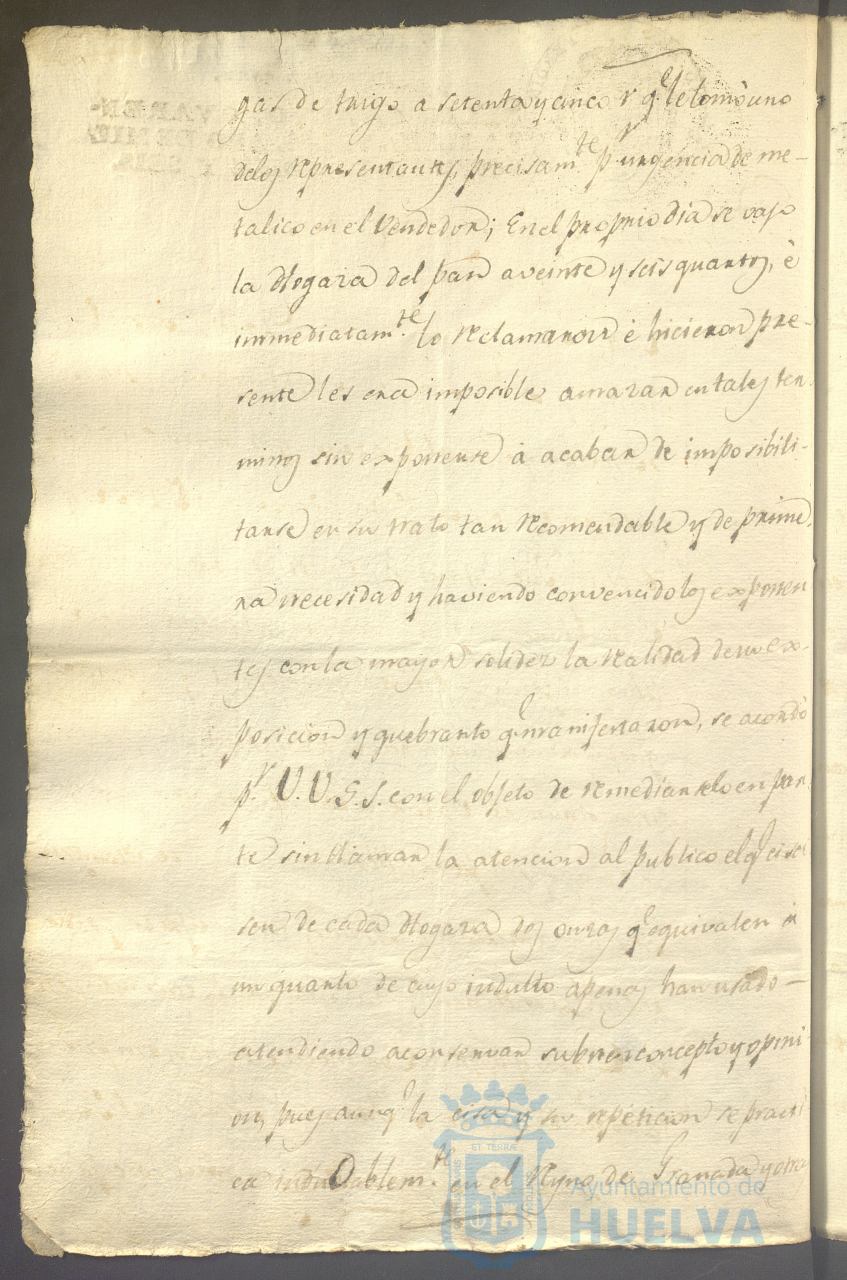 gas de trigo a setenta y cinco r.s q.e le tomò uno
delos representantes, precisam.te p.r urgencia de me-
talico en el Vendedor; En el proprio dia se vajo
la Hogaza del pan a veinte y seis quartos, è
immediatam.te lo reclamaron è hicieron pre-
sente les era imposible amazar en tales ter-
minos sin exponerse à acabar de imposibili-
tarse en su trato tan recomendable y de prime-
ra necesidad y haviendo convencido los exponen
tes con la mayor solidez la realidad de su ex-
posicion y quebranto q.e manifestaron, se acordò
p.r V.V.S.S. con el objeto de remediarselo en par-
te sin llamar la atencion al publico el q.e cisa
sen de cada Hogaza dos onzas q.e equivalen à
un quarto de cuyo indulto apenas han usado -
atendiendo a conservar su buen concepto y opini
on, pues aunq.e la cisa y su repeticion se practi
ca indudablem.te en el Reyno de Granada y otra
Ayuntamiento de
HUELVA